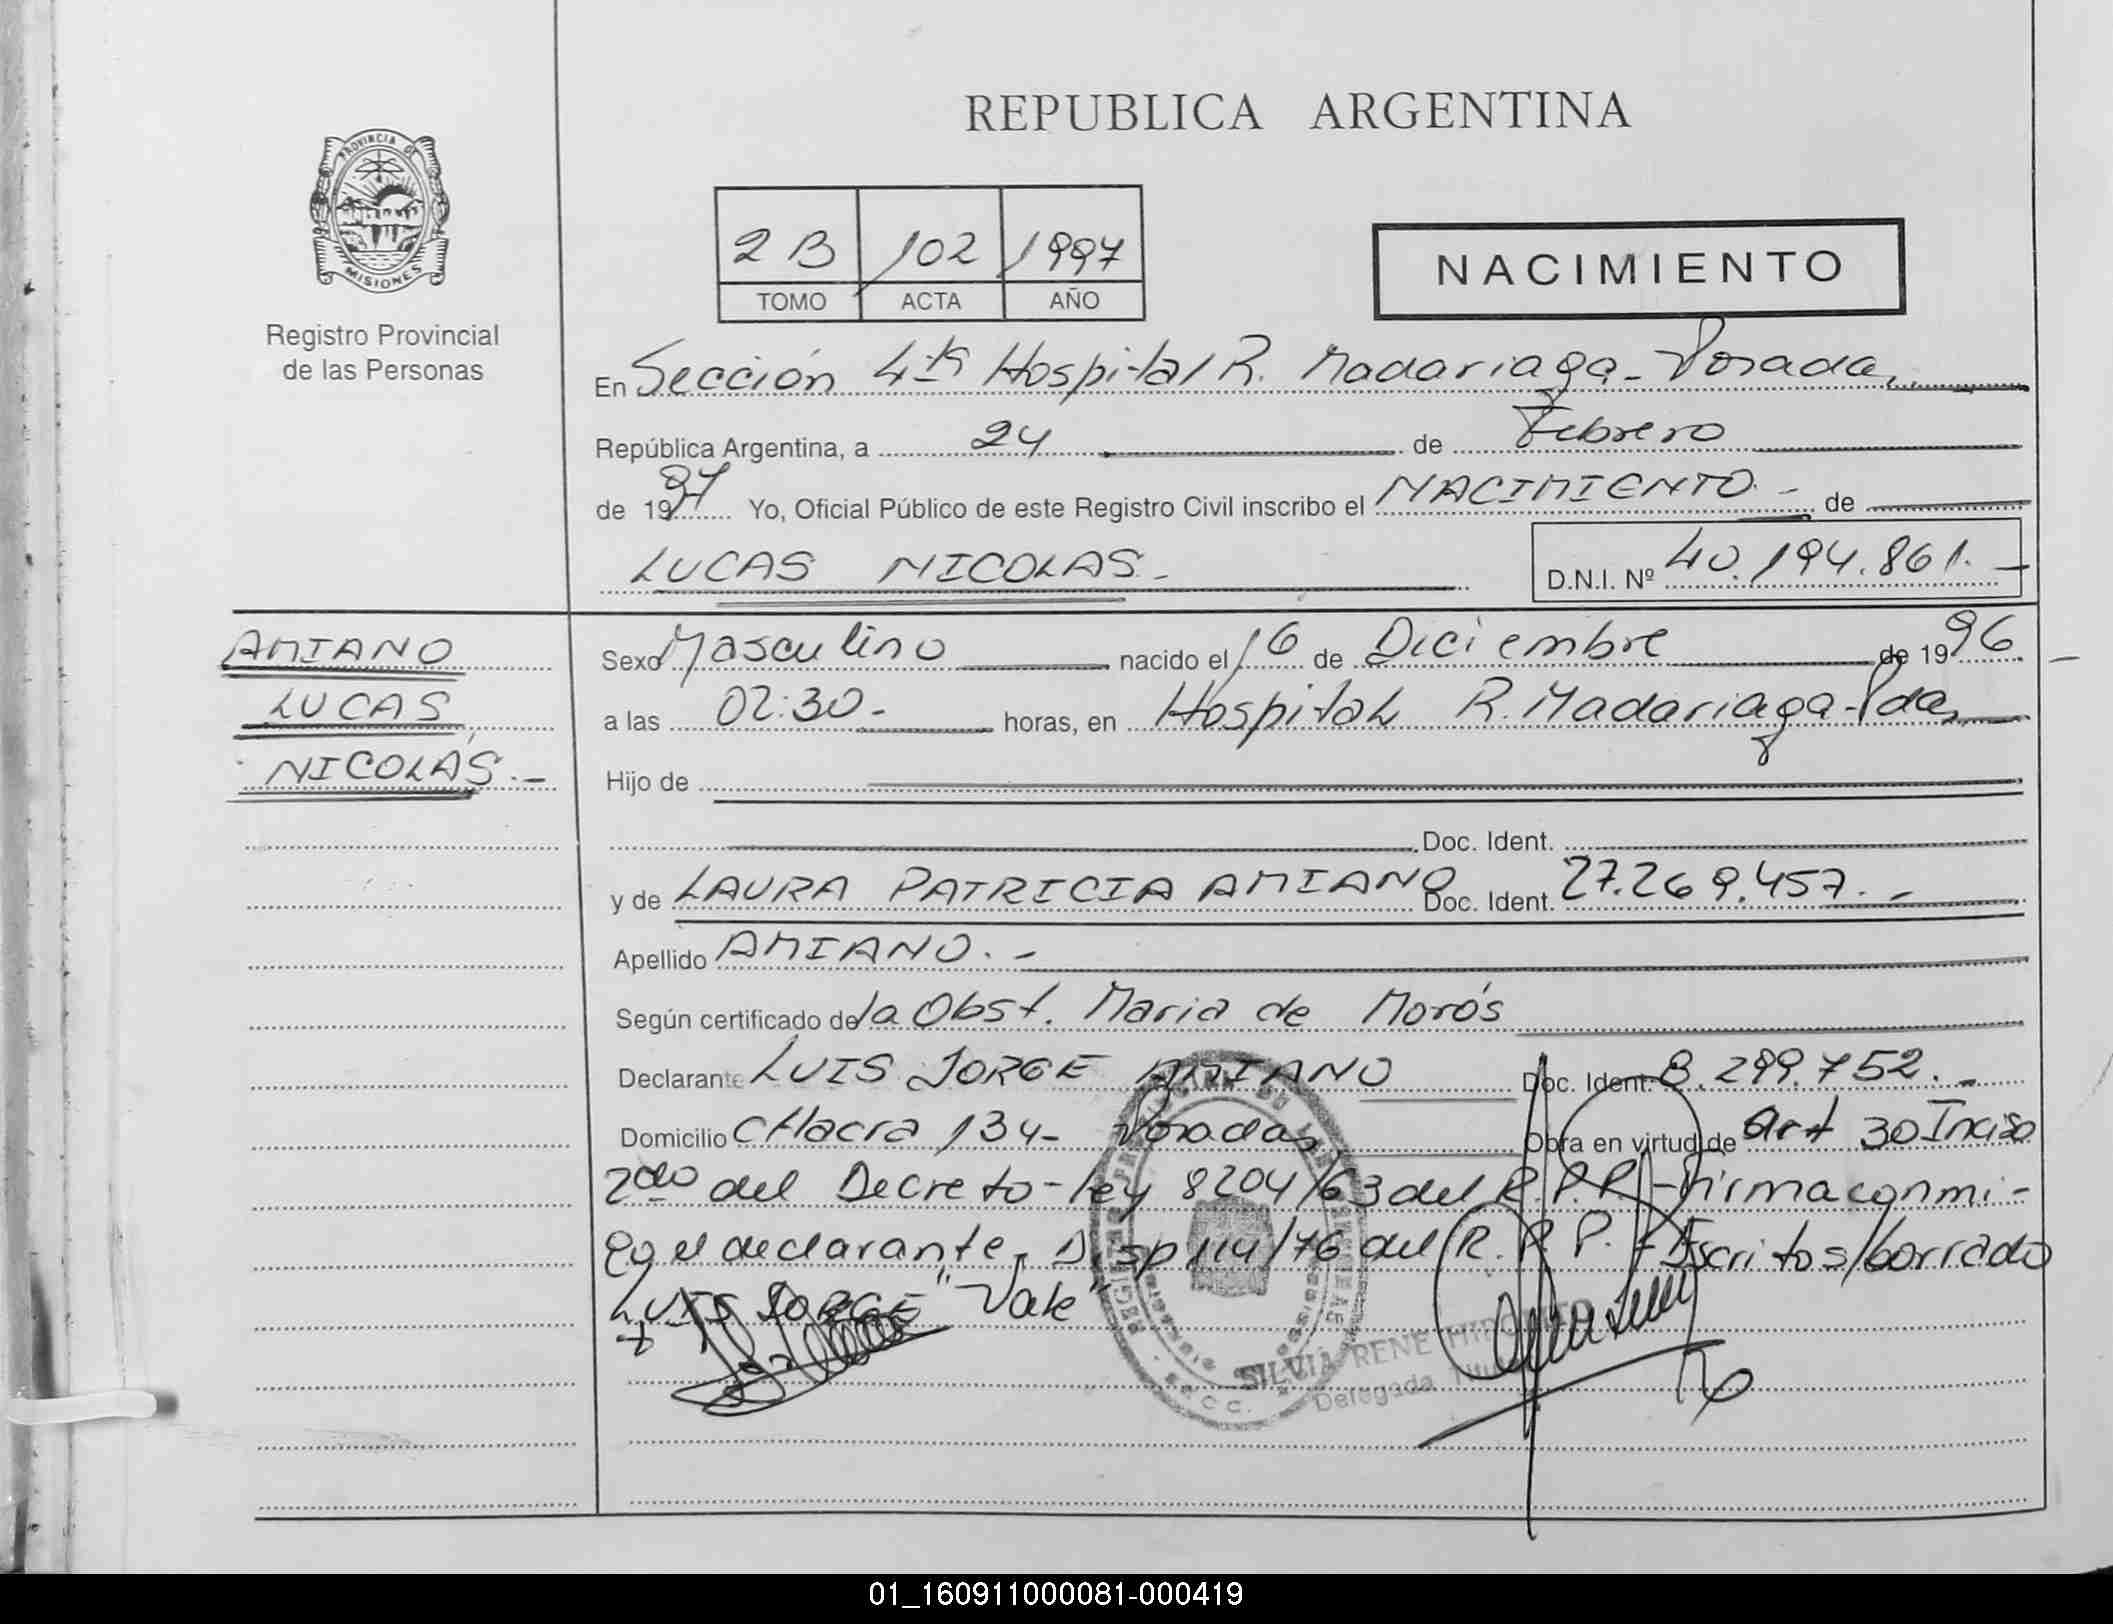 REPUBLICA ARGENTINA
PROVINCIA DE
MISIONES
Registro Provincial
de las Personas
2 B 102 1997
TOMO ACTA AÑO
NACIMIENTO
En Sección 4ta Hospital R. Madariaga - Posadas
República Argentina, a 24 de Febrero
de 1997 Yo, Oficial Público de este Registro Civil inscribo el NACIMIENTO.- de
LUCAS NICOLAS.- D.N.I. Nº 40.194.861.-
AMIANO
LUCAS
NICOLÁS.-
Sexo Masculino nacido el 16 de Diciembre de 1996.-
a las 02:30.- horas, en Hospital R. Madariaga - Pdas
Hijo de
Doc. Ident.
y de LAURA PATRICIA AMIANO Doc. Ident. 27.269.457.-
Apellido AMIANO.-
Según certificado de la Obst. Maria de Morós
Declarante LUIS JORGE AMIANO Doc. Ident. 8.299.752.-
Domicilio CHacra 134- Posadas Obra en virtud de Art 30 Inciso
2do del Decreto-ley 8204/63 del R.P.P.- Firma conmi-
go el declarante. Disp 114/76 del R.P.P.- Escritos/borrado
LUIS JORGE "Vale"
SILVIA RENE HIPOLITO
Delegada Titular
01_160911000081-000419